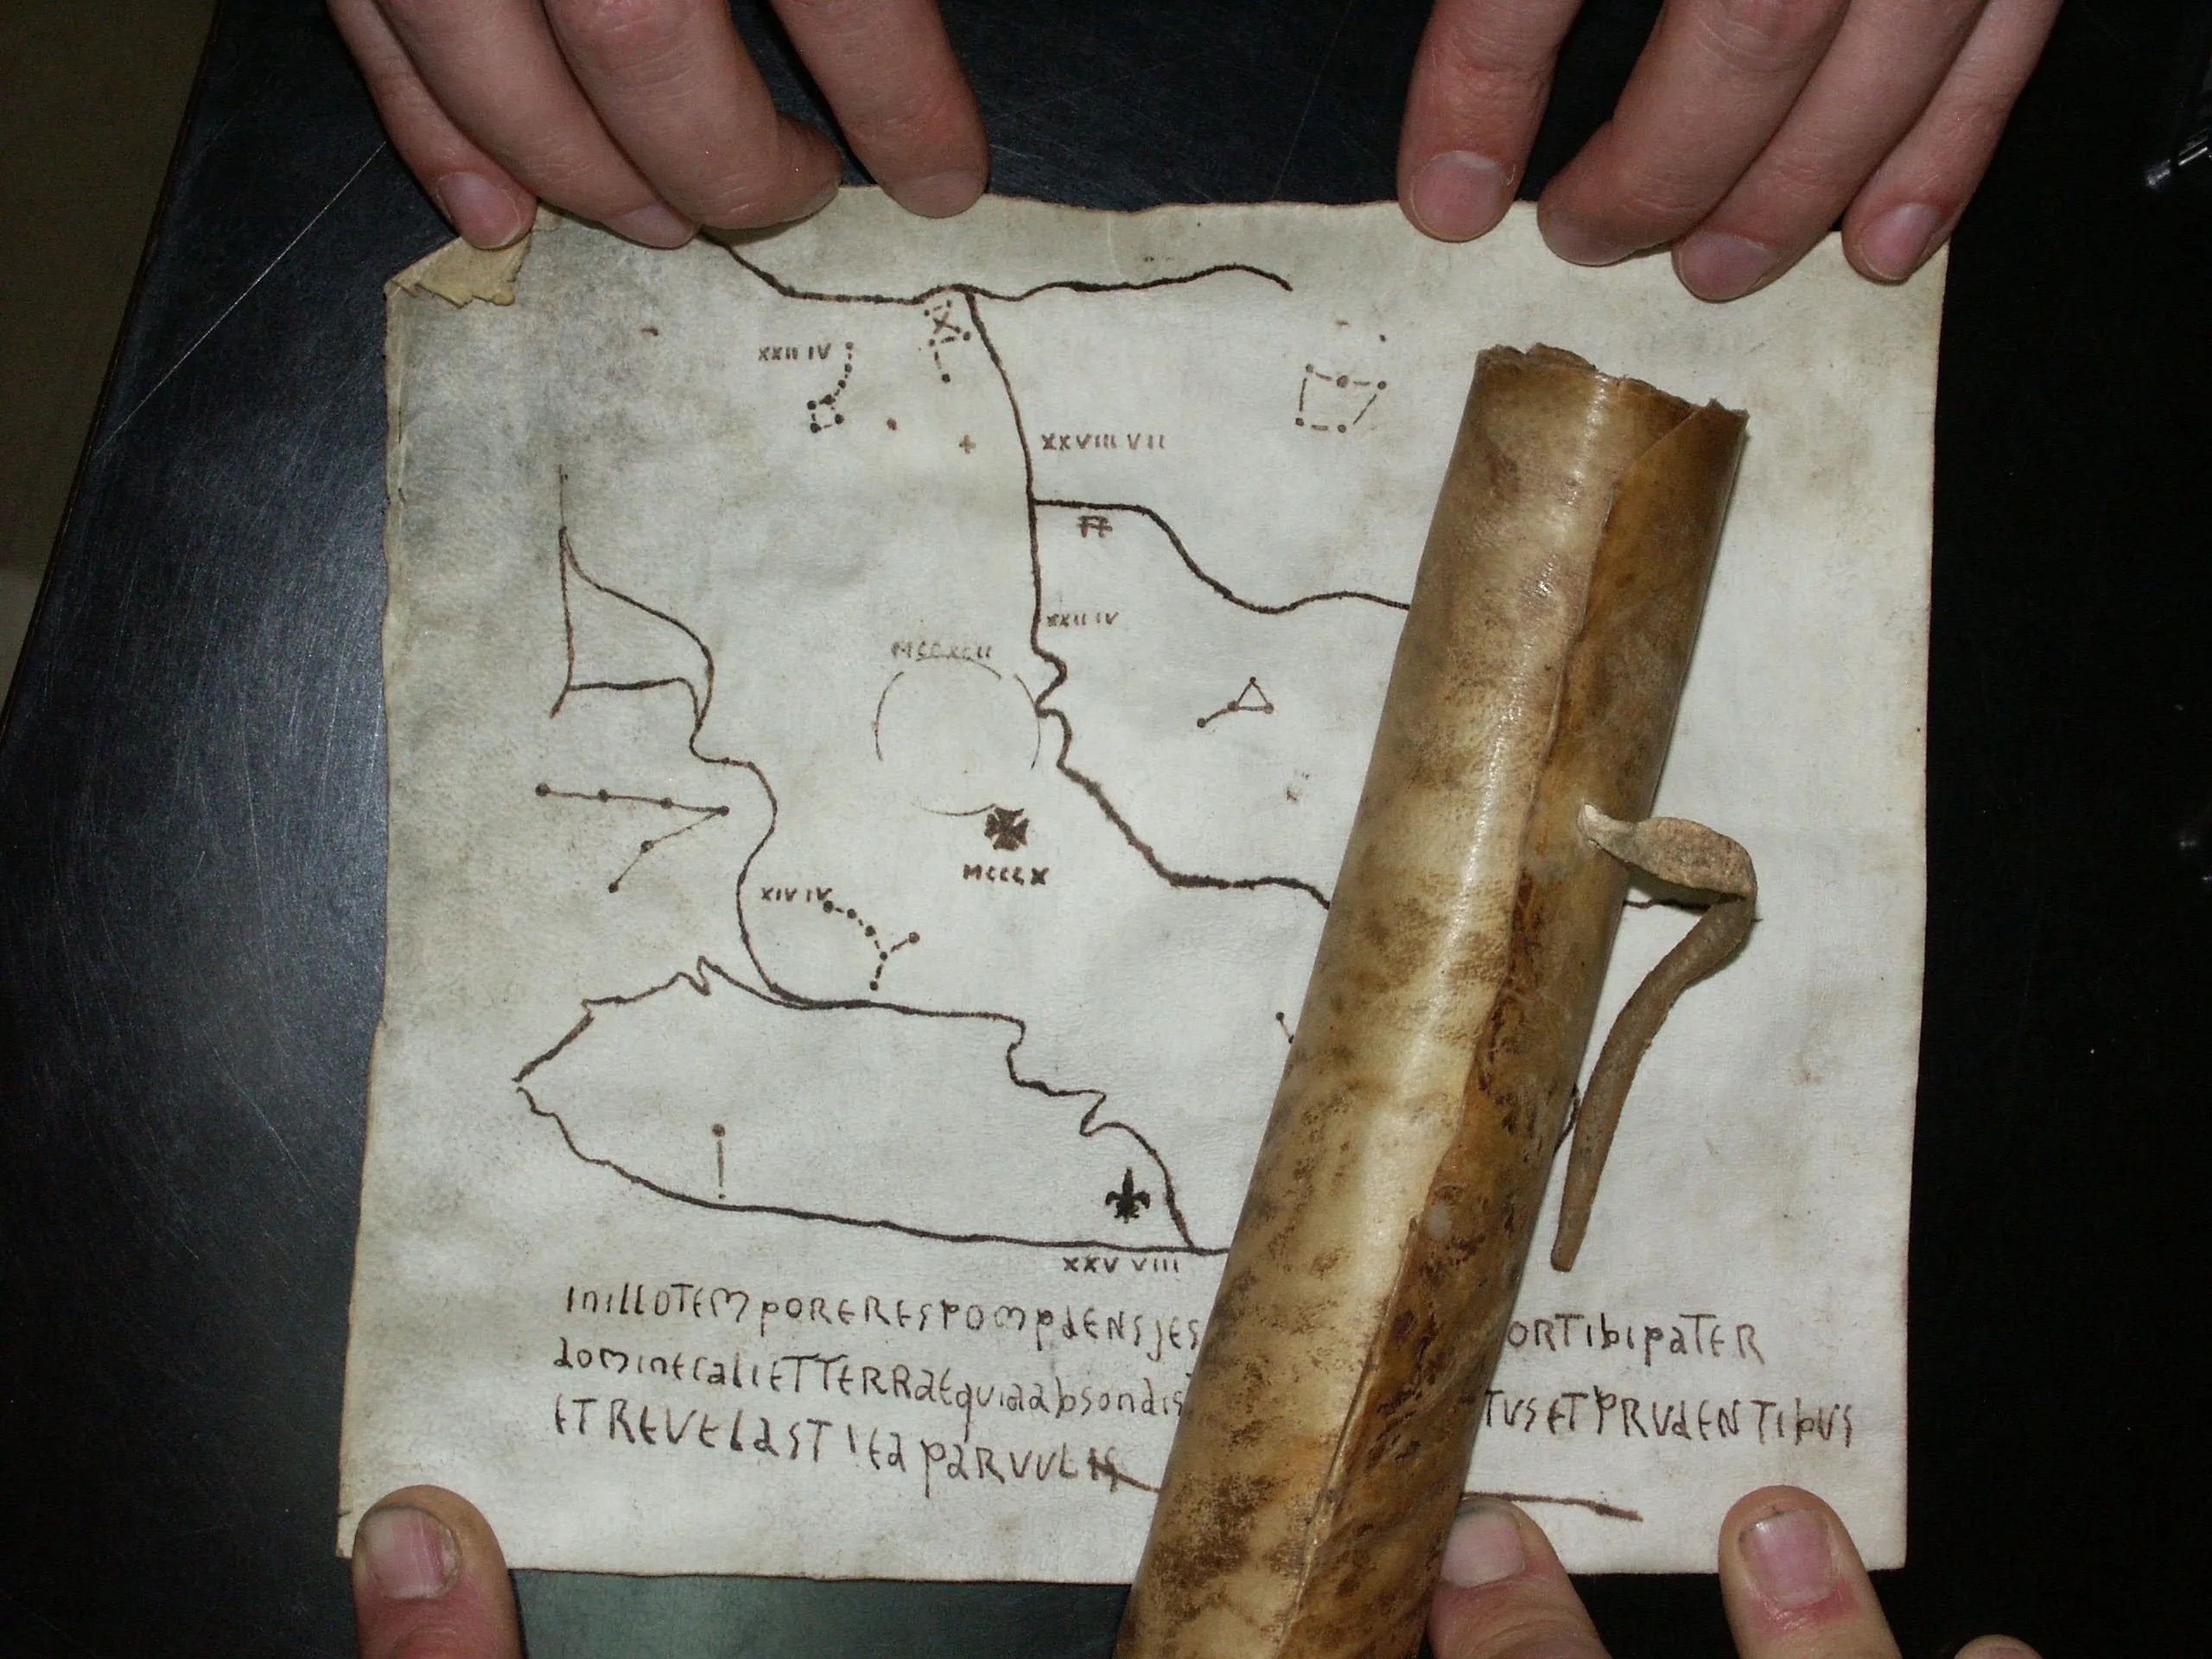 XXII IV
XXVIII VII
XXII IV
MCCXCII
MCCCX
XIV IV
XXV VIII
INILLOTEMPORERESPOMPdENSJES ORTIbIPaTER
dOMINECaLIETTERRaEquiaabsondis TUSETPRUdENTIbUS
ETREVELaSTIEaPaRVULIS